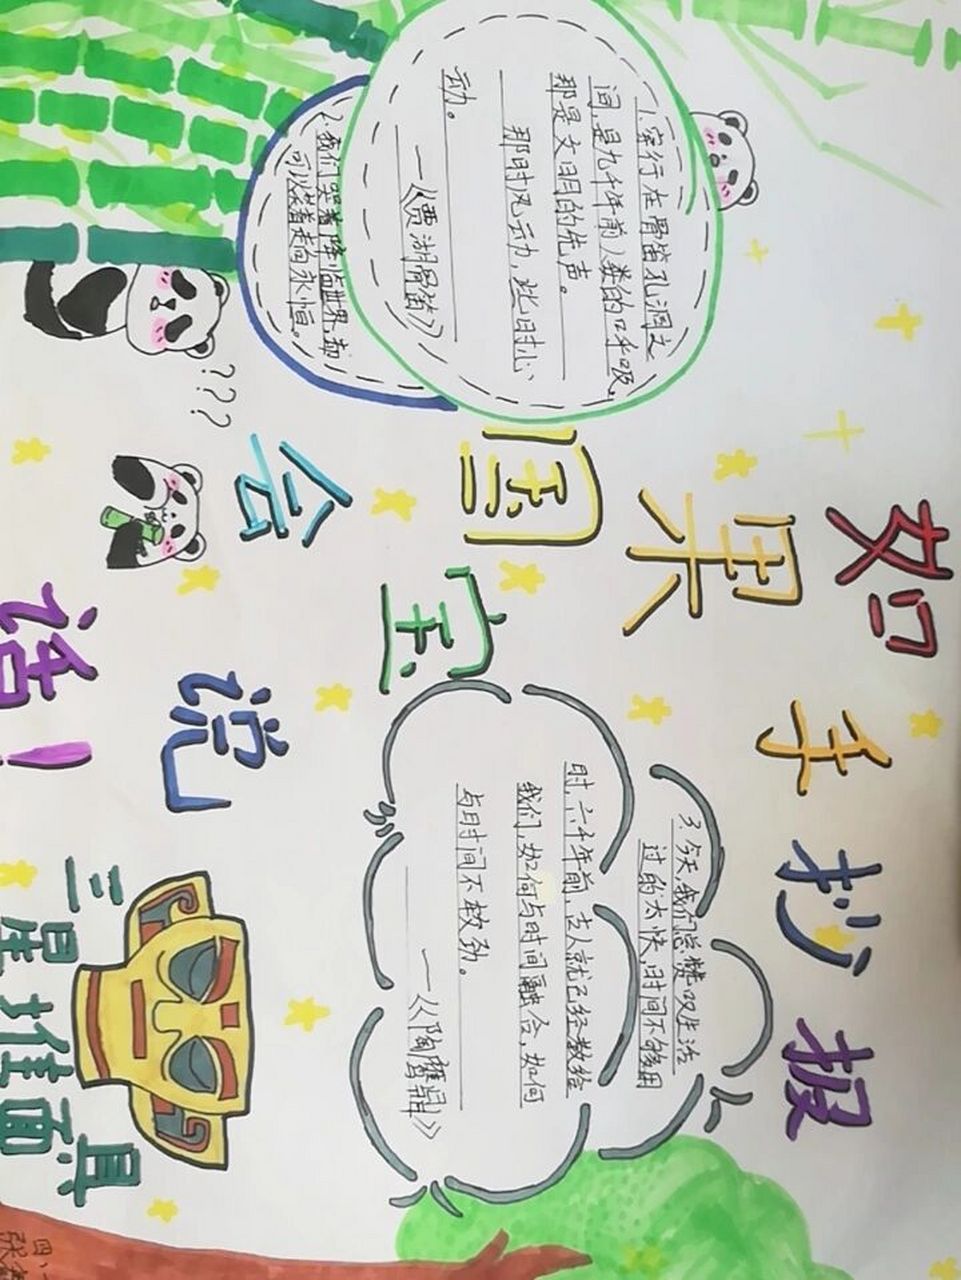 如果国宝会说话！
手抄报
1.穿行在骨笛孔洞之
间,是九千年前人类的呼吸,
那是文明的先声。
那时风动,此时心
动。
—《贾湖骨笛》
2.我们哭着降临世界,却
可以笑着走向永恒。
???
3.今天,我们总赞叹生活
过的太快,时间不够用
时,六千年前,古人就已经教给
我们,如何与时间融合,如何
与时间不较劲。
—《陶鹰鼎》
三星堆面具